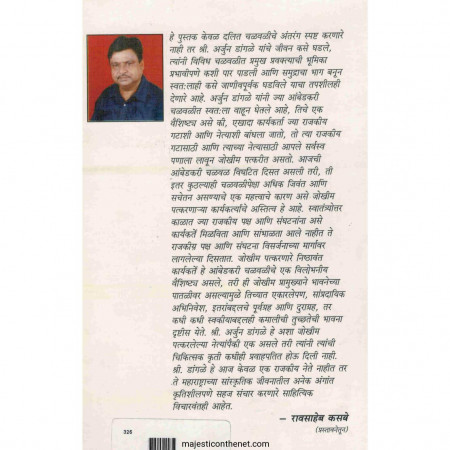 हे पुस्तक केवळ दलित चळवळीचे अंतरंग स्पष्ट करणारे
नाही तर श्री. अर्जुन डांगळे यांचे जीवन कसे घडले,
त्यांनी विविध चळवळीत प्रमुख प्रवक्त्याची भूमिका
प्रभावीपणे कशी पार पाडली आणि समुद्राचा भाग बनून
स्वत:लाही कसे जाणीवपूर्वक घडविले याचा तपशीलही
देणारे आहे. श्री. अर्जुन डांगळे यांनी ज्या आंबेडकरी
चळवळीत स्वत:ला वाहून घेतले आहे, तिचे एक
वैशिष्ट्य असे की, एखादा कार्यकर्ता ज्या राजकीय
गटाशी आणि नेत्याशी बांधला जातो, तो त्या राजकीय
गटासाठी आणि त्याच्या नेत्यासाठी आपले सर्वस्व
पणाला लावून जोखीम पत्करीत असतो. आजची
आंबेडकरी चळवळ विघटित दिसत असली तरी, ती
इतर कुठल्याही चळवळीपेक्षा अधिक जिवंत आणि
सचेतन असण्याचे एक महत्वाचे कारण असे जोखीम
पत्करणाऱ्या कार्यकर्त्यांचे अस्तित्व हे आहे. स्वातंत्र्योत्तर
काळात ज्या राजकीय पक्ष आणि संघटनांना असे
कार्यकर्ते मिळविता आणि सांभाळता आले नाहीत ते
राजकीय पक्ष आणि संघटना विसर्जनाच्या मार्गावर
लागलेल्या दिसतात. जोखीम पत्करणारे निष्ठावंत
कार्यकर्ते हे आंबेडकरी चळवळीचे एक विलोभनीय
वैशिष्ट्य असले, तरी ही जोखीम प्रामुख्याने भावनेच्या
पातळीवर असल्यामुळे तिच्यात एकारलेपण, सांप्रदायिक
अभिनिवेश, इतरांबद्दलचे पूर्वग्रह आणि दुराग्रह, तर
कधी कधी स्वकीयाबद्दलही कमालीची तुच्छतेची भावना
दृष्टीस येते. श्री. अर्जुन डांगळे हे अशा जोखीम
पत्करलेल्या नेत्यांपैकी एक असले तरी त्यांनी त्यांची
चिकित्सक वृत्ती कधीही प्रवाहपतित होऊ दिली नाही.
श्री. डांगळे हे आज केवळ एक राजकीय नेते नाहीत तर
ते महाराष्ट्राच्या सांस्कृतिक जीवनातील अनेक अंगांत
कृतिशीलपणे सहज संचार करणारे साहित्यिक
विचारवंतही आहेत.
– रावसाहेब कसबे
(प्रस्तावनेतून)
326
majesticonthenet.com